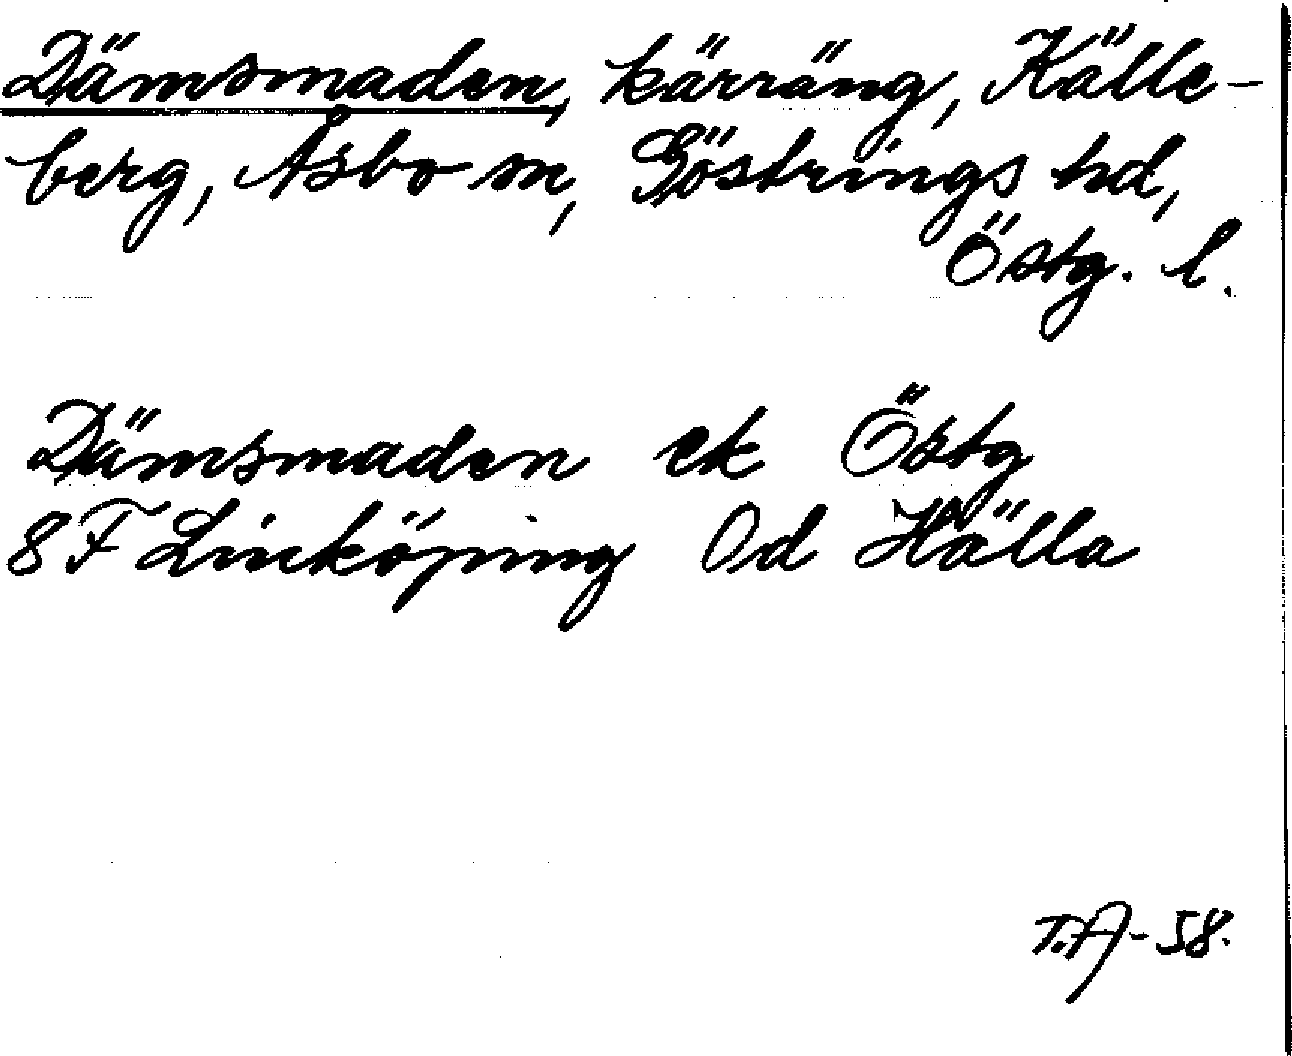 Dämsmaden, kärräng, Källe-
berg, Åsbo sn, Göstrings hd,
Östg. l.
Dämsmaden ek Östg
8 F Linköping 0d Hälla
T.A-58.